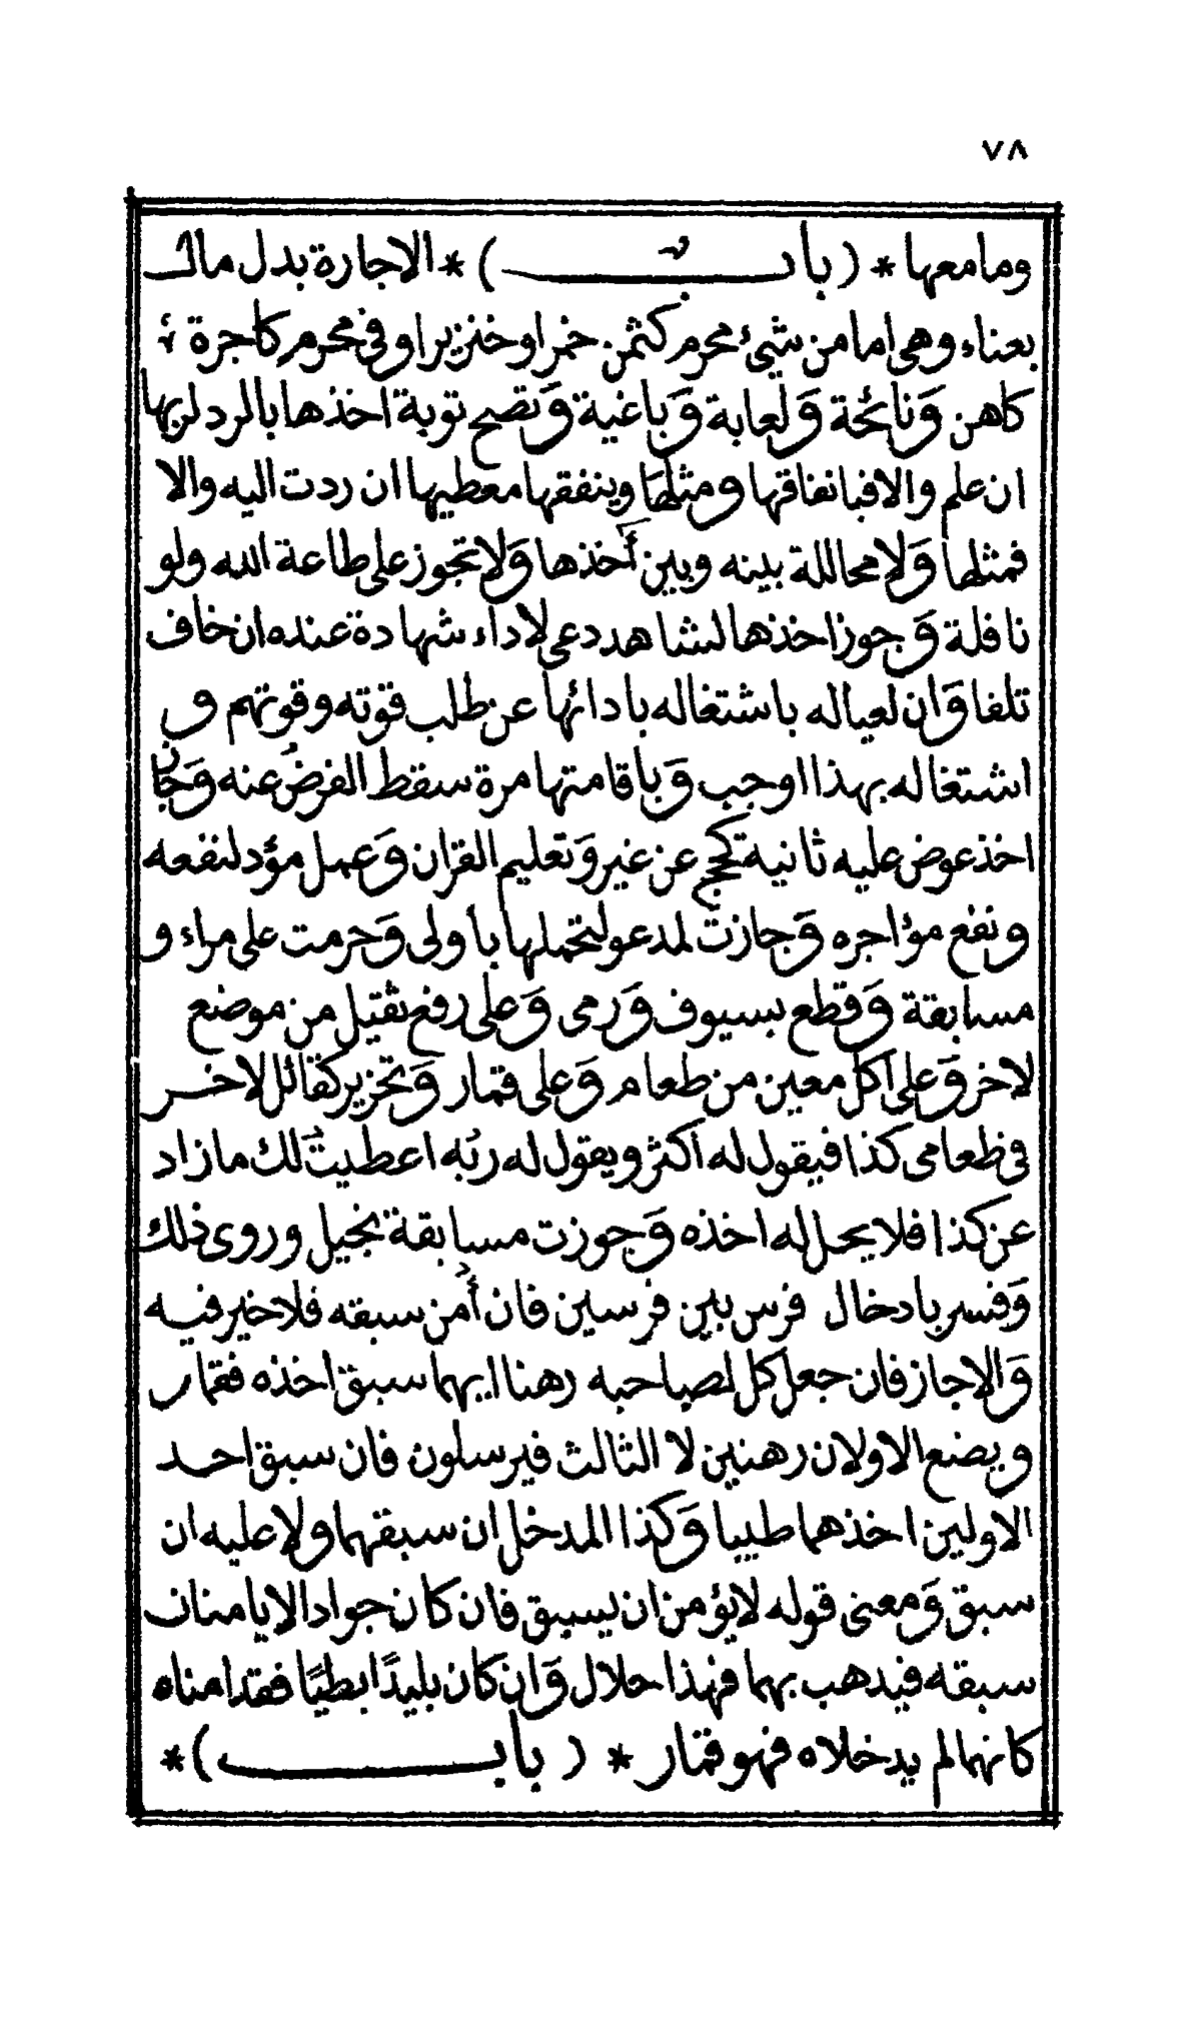 ٧٨
ومامعها * ( باب ) * الاجارة بدل مال
بعناء وهى اما من شيئ محرم كثمن خمر او خنزير او فى محرم كاجرة
كاهن وَنائحة وَلعابة وَباغية وَتصح توبة اخذها بالرد لربها
ان علم والا فبانفاقها ومثلها وينفقها معطيها ان ردت اليه والا
فمثلها وَلا محاللة بينه وبين أخذها وَلا تجوز على طاعة الله ولو
نافلة وَجوز اخذها لشاهد دعى لاداء شهادة عنده ان خاف
تلفا وَان لعياله باشتغاله بادائها عن طلب قوته وقوتهم و
اشتغاله بهذا اوجب وَباقامتها مرة سقط الفرض عنه وَجاز
اخذ عوض عليه ثانية كحج عن غير وَتعليم القران وَعمل مؤد لنفعه
ونفع مؤاجره وَجازت لمدعو لتحملها بأولى وَحرمت على مراء و
مسابقة وَقطع بسيوف وَرمى وَعلى رفع ثقيل من موضع
لاخر وَعلى اكل معين من طعام وَعلى قمار وَتخزير كقائل لاخر
فى طعامى كذا فيقول له اكثر ويقول له ربه اعطيت لك ما زاد
عن كذا فلا يحل له اخذه وَجوزت مسابقة بخيل وروى ذلك
وَفسر بادخال فرس بين فرسين فان أمن سبقه فلا خير فيه
وَالا جاز فان جعل كل لصاحبه رهنا ايهما سبق اخذه فقمار
ويضع الاولان رهنين لا الثالث فيرسلون فان سبق احد
الاولين اخذهما طيبا وَكذا المدخل ان سبقهما ولا عليه ان
سبق وَمعنى قوله لا يؤمن ان يسبق فان كان جوادا لا يامنان
سبقه فيذهب بهما فهذا حلال وَان كان بليدًا بطيًا فقد امناه
كانهما لم يدخلاه فهو قمار * ( باب ) *